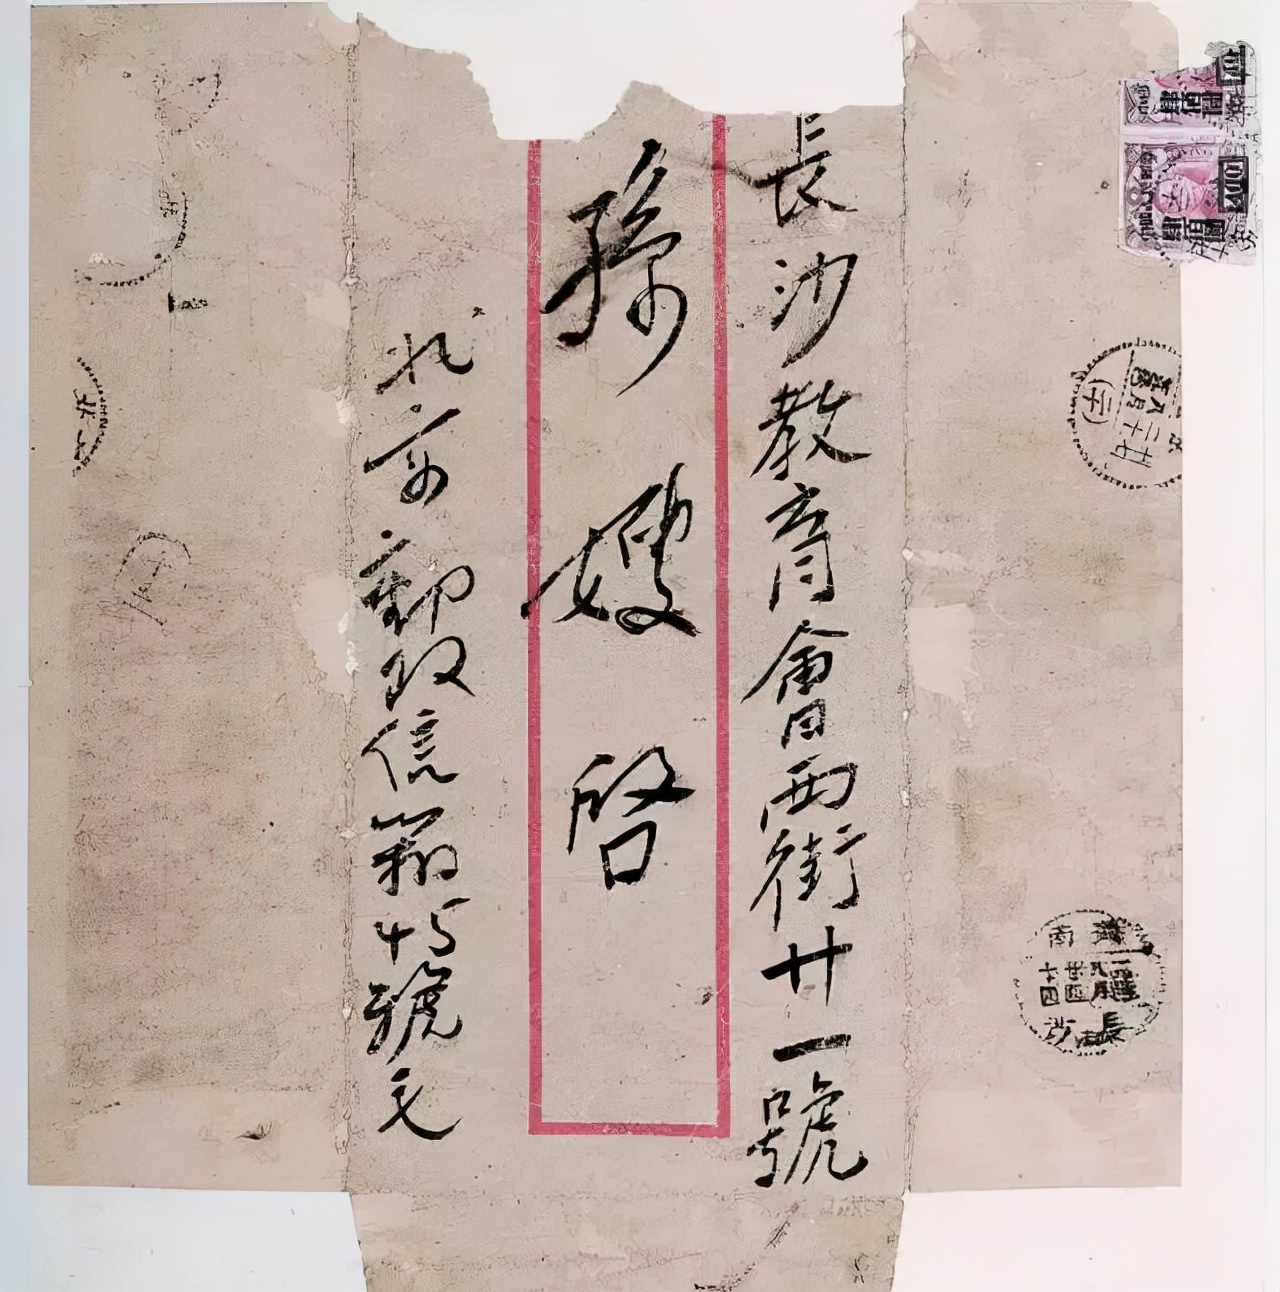 長沙教育會西街廿一號
孫嫂啓
北京郵政信箱十五號毛
南
長沙